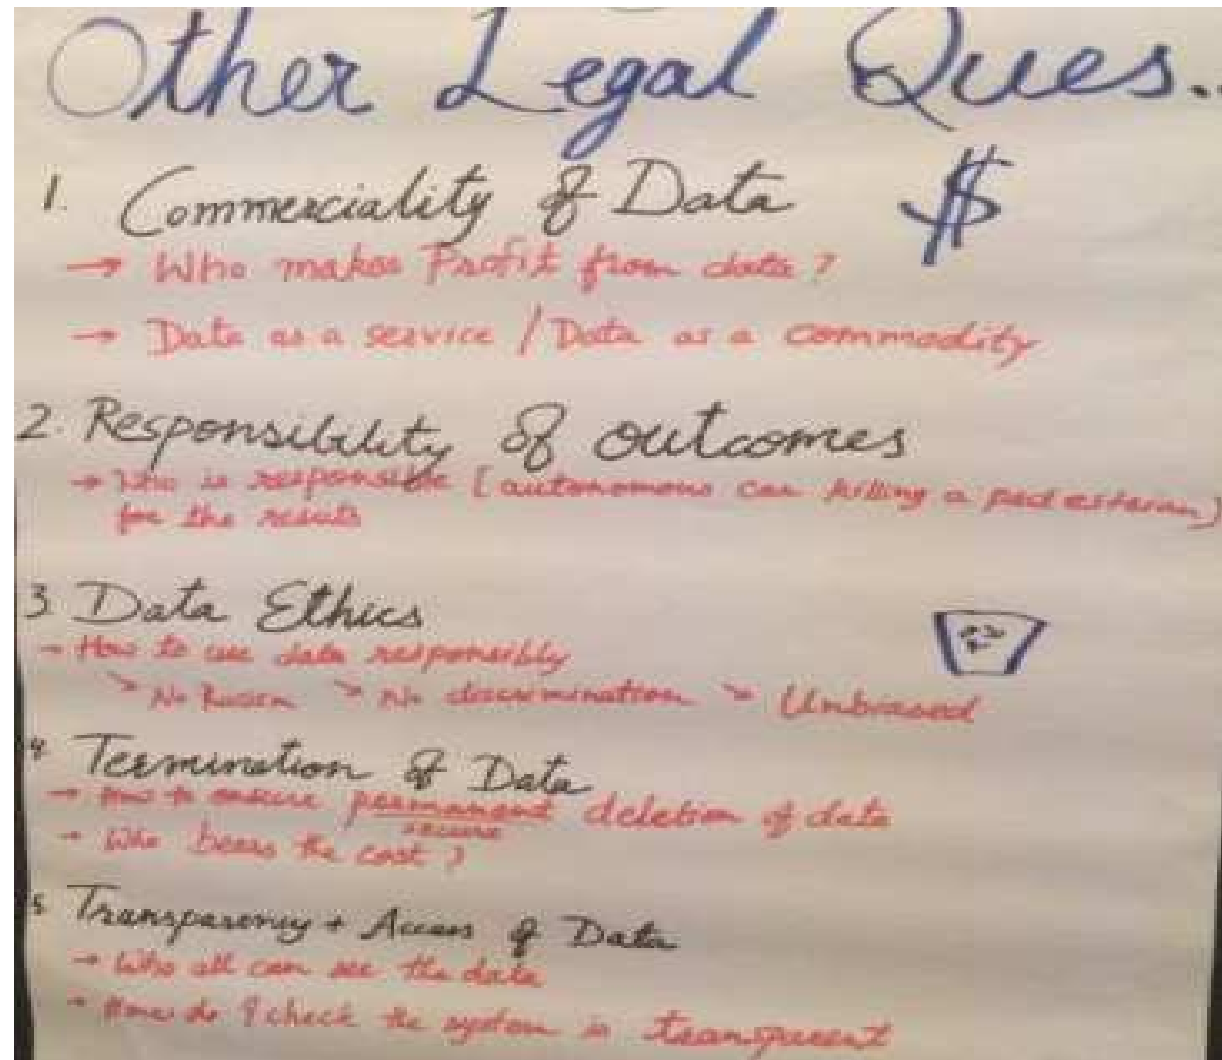 Other Legal Ques..
1. Commerciality of Data $
→ Who makes Profit from data?
→ Data as a service / Data as a commodity
2. Responsibility of outcomes
→ Who is responsible [autonomous car killing a pedesteran]
for the results
3 Data Ethics
→ How to use data responsibly
↘ No ↘ No discrimination ↘ Unbiased
4 Termination of Data
→ How to ensure permanent deletion of data
secure
→ Who bears the cost?
5 Transparency + Access of Data
→ Who all can see the data
→ How do I check the system is transparent